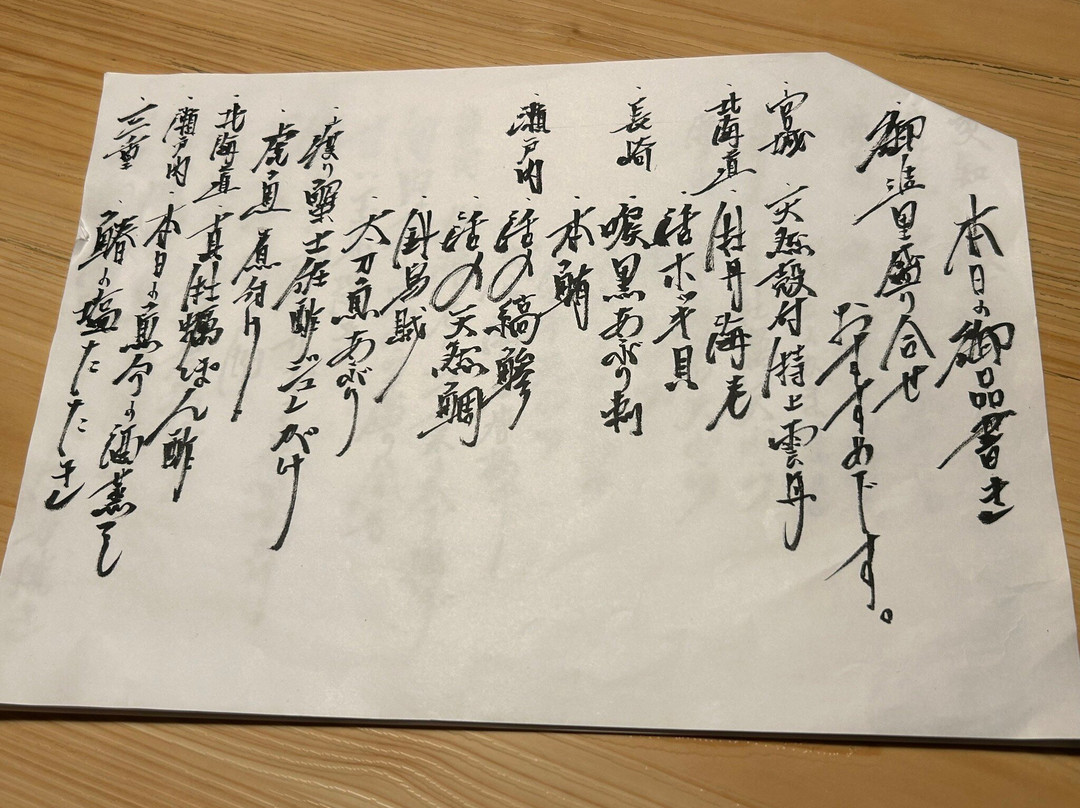 本日の御品書き
御造里盛り合せ
おすすめです。
・宮城 ・天然殻付特上雲丹
・北海道 ・牡丹海老
・活ホッキ貝
・長崎 ・喉黒あぶり刺
・本鮪
・瀬戸内 ・活〆縞鯵
・活〆天然鯛
・針烏賊
・太刀魚あぶり
・渡り蟹土佐酢ジュレがけ
・虎魚煮付け
・北海道 ・真牡蠣ぽん酢
・瀬戸内 ・本日の魚介の酒蒸し
・三重 ・鰆の塩たたき